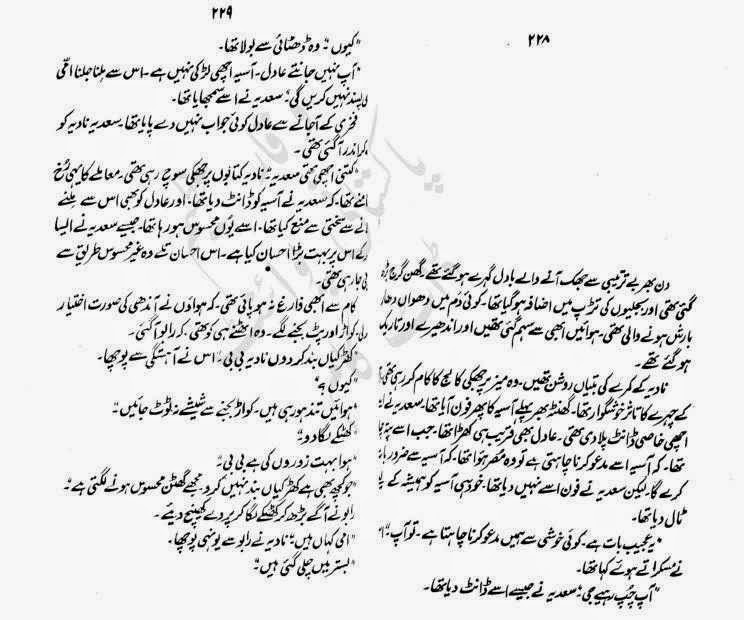 ۲۲۸
دن بھر بے ترتیبی سے جھک آنے والے بادل گہرے ہو گئے تھے۔ گھن گرج بڑھ
گئی تھی اور بجلیوں کی تڑپ میں اضافہ ہو گیا تھا۔ کوئی دم میں دھواں دھار
بارش ہونے والی تھی۔ ہوائیں ابھی سے سہم گئی تھیں اور اندھیرے اور تاریک
ہو گئے تھے۔
نادیہ کے کمرے کی بتیاں روشن تھیں۔ وہ میز پر جھکی کالج کا کام کر رہی تھی
کے چہرے کا تاثر خوشگوار تھا۔ گھنٹہ بھر پہلے آسیہ کا پھر فون آیا تھا۔ سعدیہ نے
اچھی خاصی ڈانٹ پلا دی تھی۔ عادل بھی قریب ہی کھڑا تھا۔ جب اسے پتہ چلا
تھا۔ کہ آسیہ اسے مدعو کرنا چاہتی ہے تو وہ مصر ہوا تھا۔ کہ آسیہ سے ضرور بات
کرے گا۔ لیکن سعدیہ نے فون اسے نہیں دیا تھا۔ خود ہی آسیہ کو ہمیشہ کے لیے
ٹال دیا تھا۔
"یہ عجیب بات ہے۔ کوئی خوشی سے ہمیں مدعو کرنا چاہتا ہے۔ تو آپ"
نے مسکراتے ہوئے کہا تھا۔
"آپ چپ رہیے جی" سعدیہ نے جیسے اسے ڈانٹ دیا تھا۔
۲۲۹
"کیوں" وہ ڈھٹائی سے بولا تھا۔
"آپ نہیں جانتے عادل۔ آسیہ اچھی لڑکی نہیں ہے۔ اس سے ملنا جلنا امی
پسند نہیں کریں گی" سعدیہ نے اسے سمجھایا تھا۔
فخری کے آ جانے سے عادل کوئی جواب نہیں دے پایا تھا۔ سعدیہ نادیہ کو
اندر آ گئی تھی۔
"کتنی اچھی تھی سعدیہ" نادیہ کتابوں پر جھکی سوچ رہی تھی۔ معاملے کا یہی رخ
تھا۔ کہ سعدیہ نے آسیہ کو ڈانٹ دیا تھا۔ اور عادل کو بھی اس سے ملنے
سے سختی سے منع کیا تھا۔ اسے یوں محسوس ہو رہا تھا۔ جیسے سعدیہ نے ایسا
کے اس پر بہت بڑا احسان کیا ہے۔ اس احسان تلے وہ غیر محسوس طریق سے
جا رہی تھی۔
کام سے ابھی فارغ نہ ہو پائی تھی۔ کہ ہواؤں نے آندھی کی صورت اختیار
کواڑ اور پٹ بجنے لگے۔ وہ اٹھنے ہی کو تھی۔ کہ رالو آ گئی۔
"کھڑکیاں بند کر دوں نادیہ بی بی" اس نے آہستگی سے پوچھا۔
"کیوں؟"
"ہوائیں تند ہو رہی ہیں۔ کواڑ بجنے سے شیشے نہ ٹوٹ جائیں"
"کھٹکے لگا دو"
"ہوا بہت زوروں کی ہے بی بی"
"جو کچھ بھی ہے کھڑکیاں بند نہیں کرو۔ مجھے گھٹن محسوس ہونے لگتی ہے"
رابو نے آگے بڑھ کر کھٹکے لگا کر پردے کھینچ دیئے۔
"امی کہاں ہیں" نادیہ نے رابو سے یونہی پوچھا۔
"بستر میں چلی گئی ہیں"